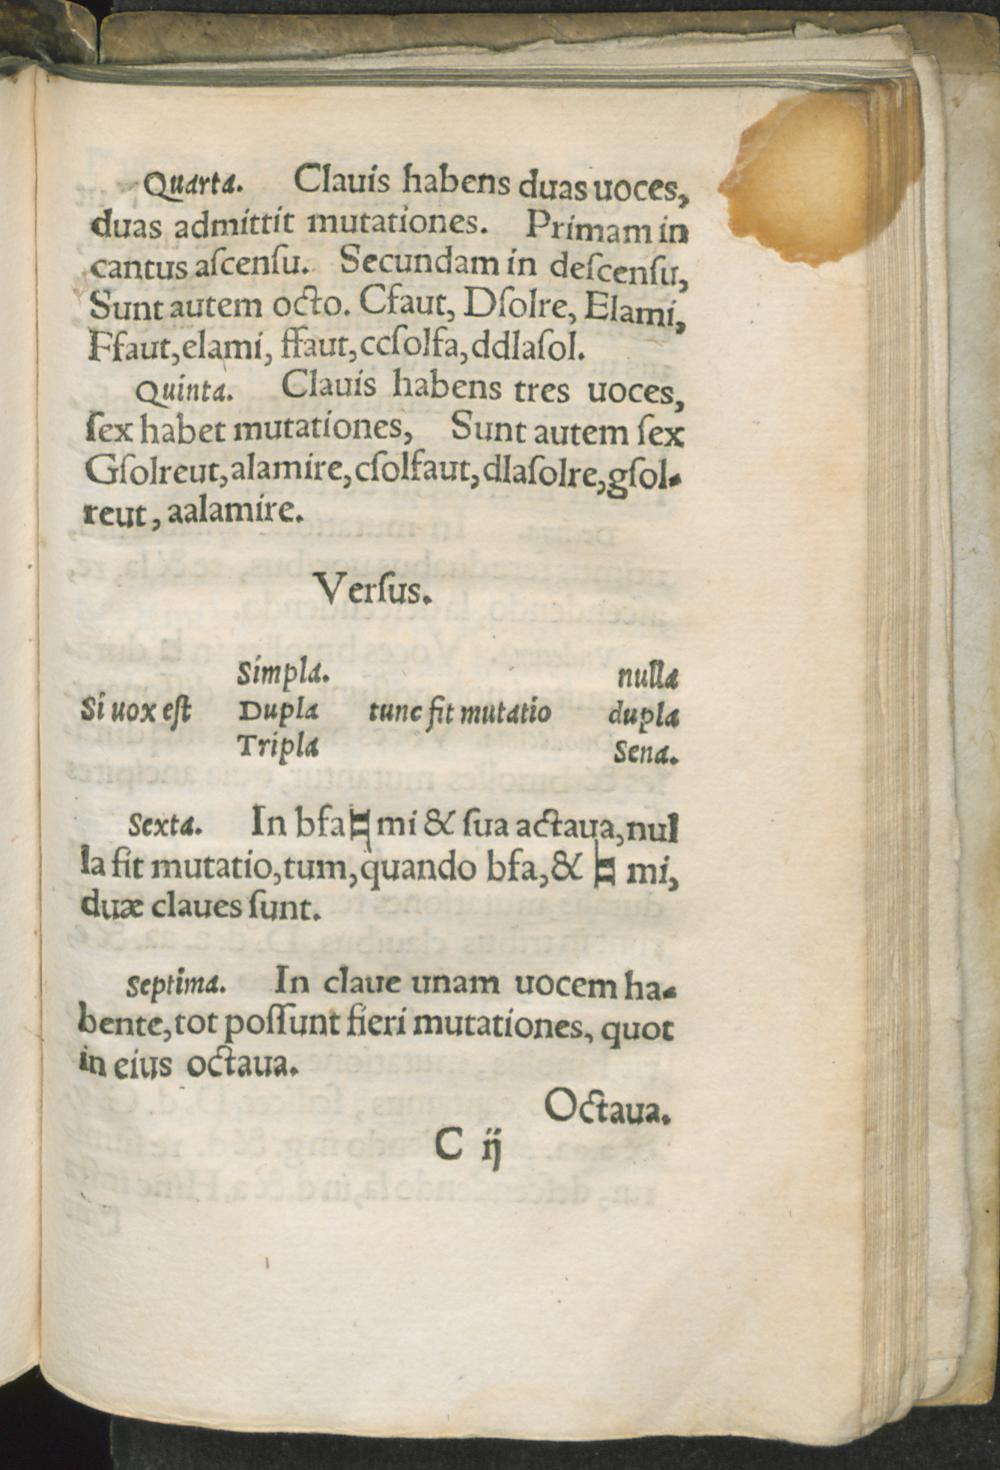 Quarta. Clauis habens duas uoces,
duas admittit mutationes. Primam in
cantus aſcenſu. Secundam in deſcenſu,
Sunt autem octo. Cfaut, Dſolre, Elami,
Ffaut, elami, ffaut, ccſolfa, ddlaſol.
Quinta. Clauis habens tres uoces,
ſex habet mutationes, Sunt autem ſex
Gſolreut, alamire, cſolfaut, dlaſolre, gſol-
reut, aalamire.
Verſus.
Simpla. nulla
Si uox eſt Dupla tunc fit mutatio dupla
Tripla Sena.
Sexta. In bfa♮mi & ſua actaua, nul
la fit mutatio, tum, quando bfa, & ♮ mi,
duæ claues ſunt.
Septima. In claue unam uocem ha-
bente, tot poſſunt fieri mutationes, quot
in eius octaua.
Octaua.
C ij